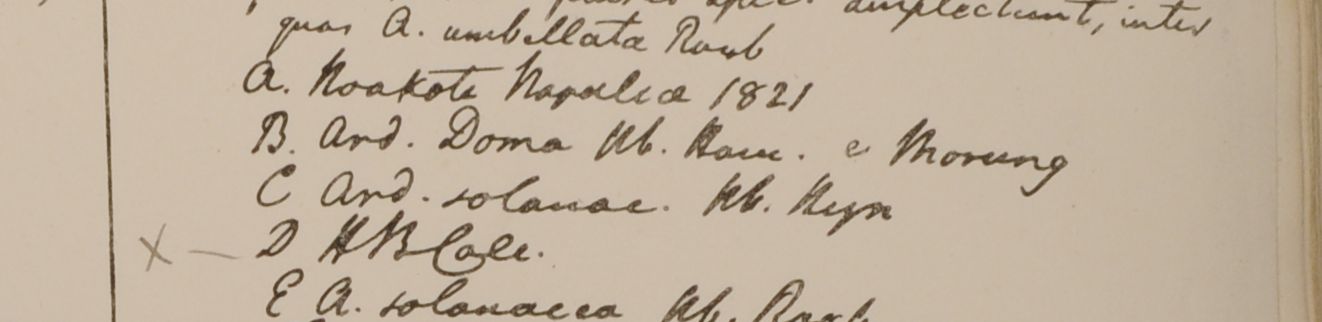 plures spec. amplectunt, inter
quas A. umbellata Roxb
A. Noakote Napalia 1821
B. Ard. Doma Hb. Ham. e Morung
C Ard. solanac. Hb. Heyn
D HBCalc.
E A. solanacea Hb. Roxb